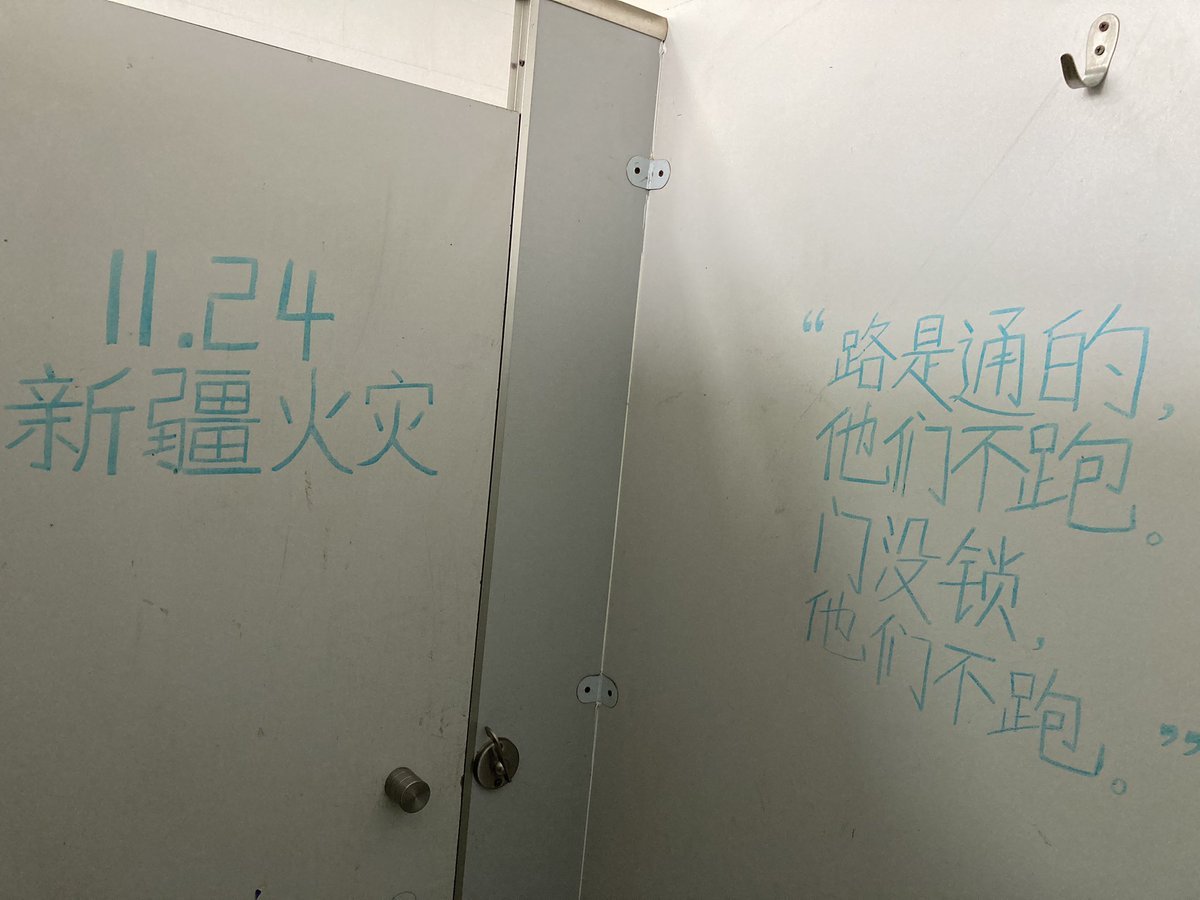 11.24
新疆火灾
“路是通的，
他们不跑。
门没锁，
他们不跑。”